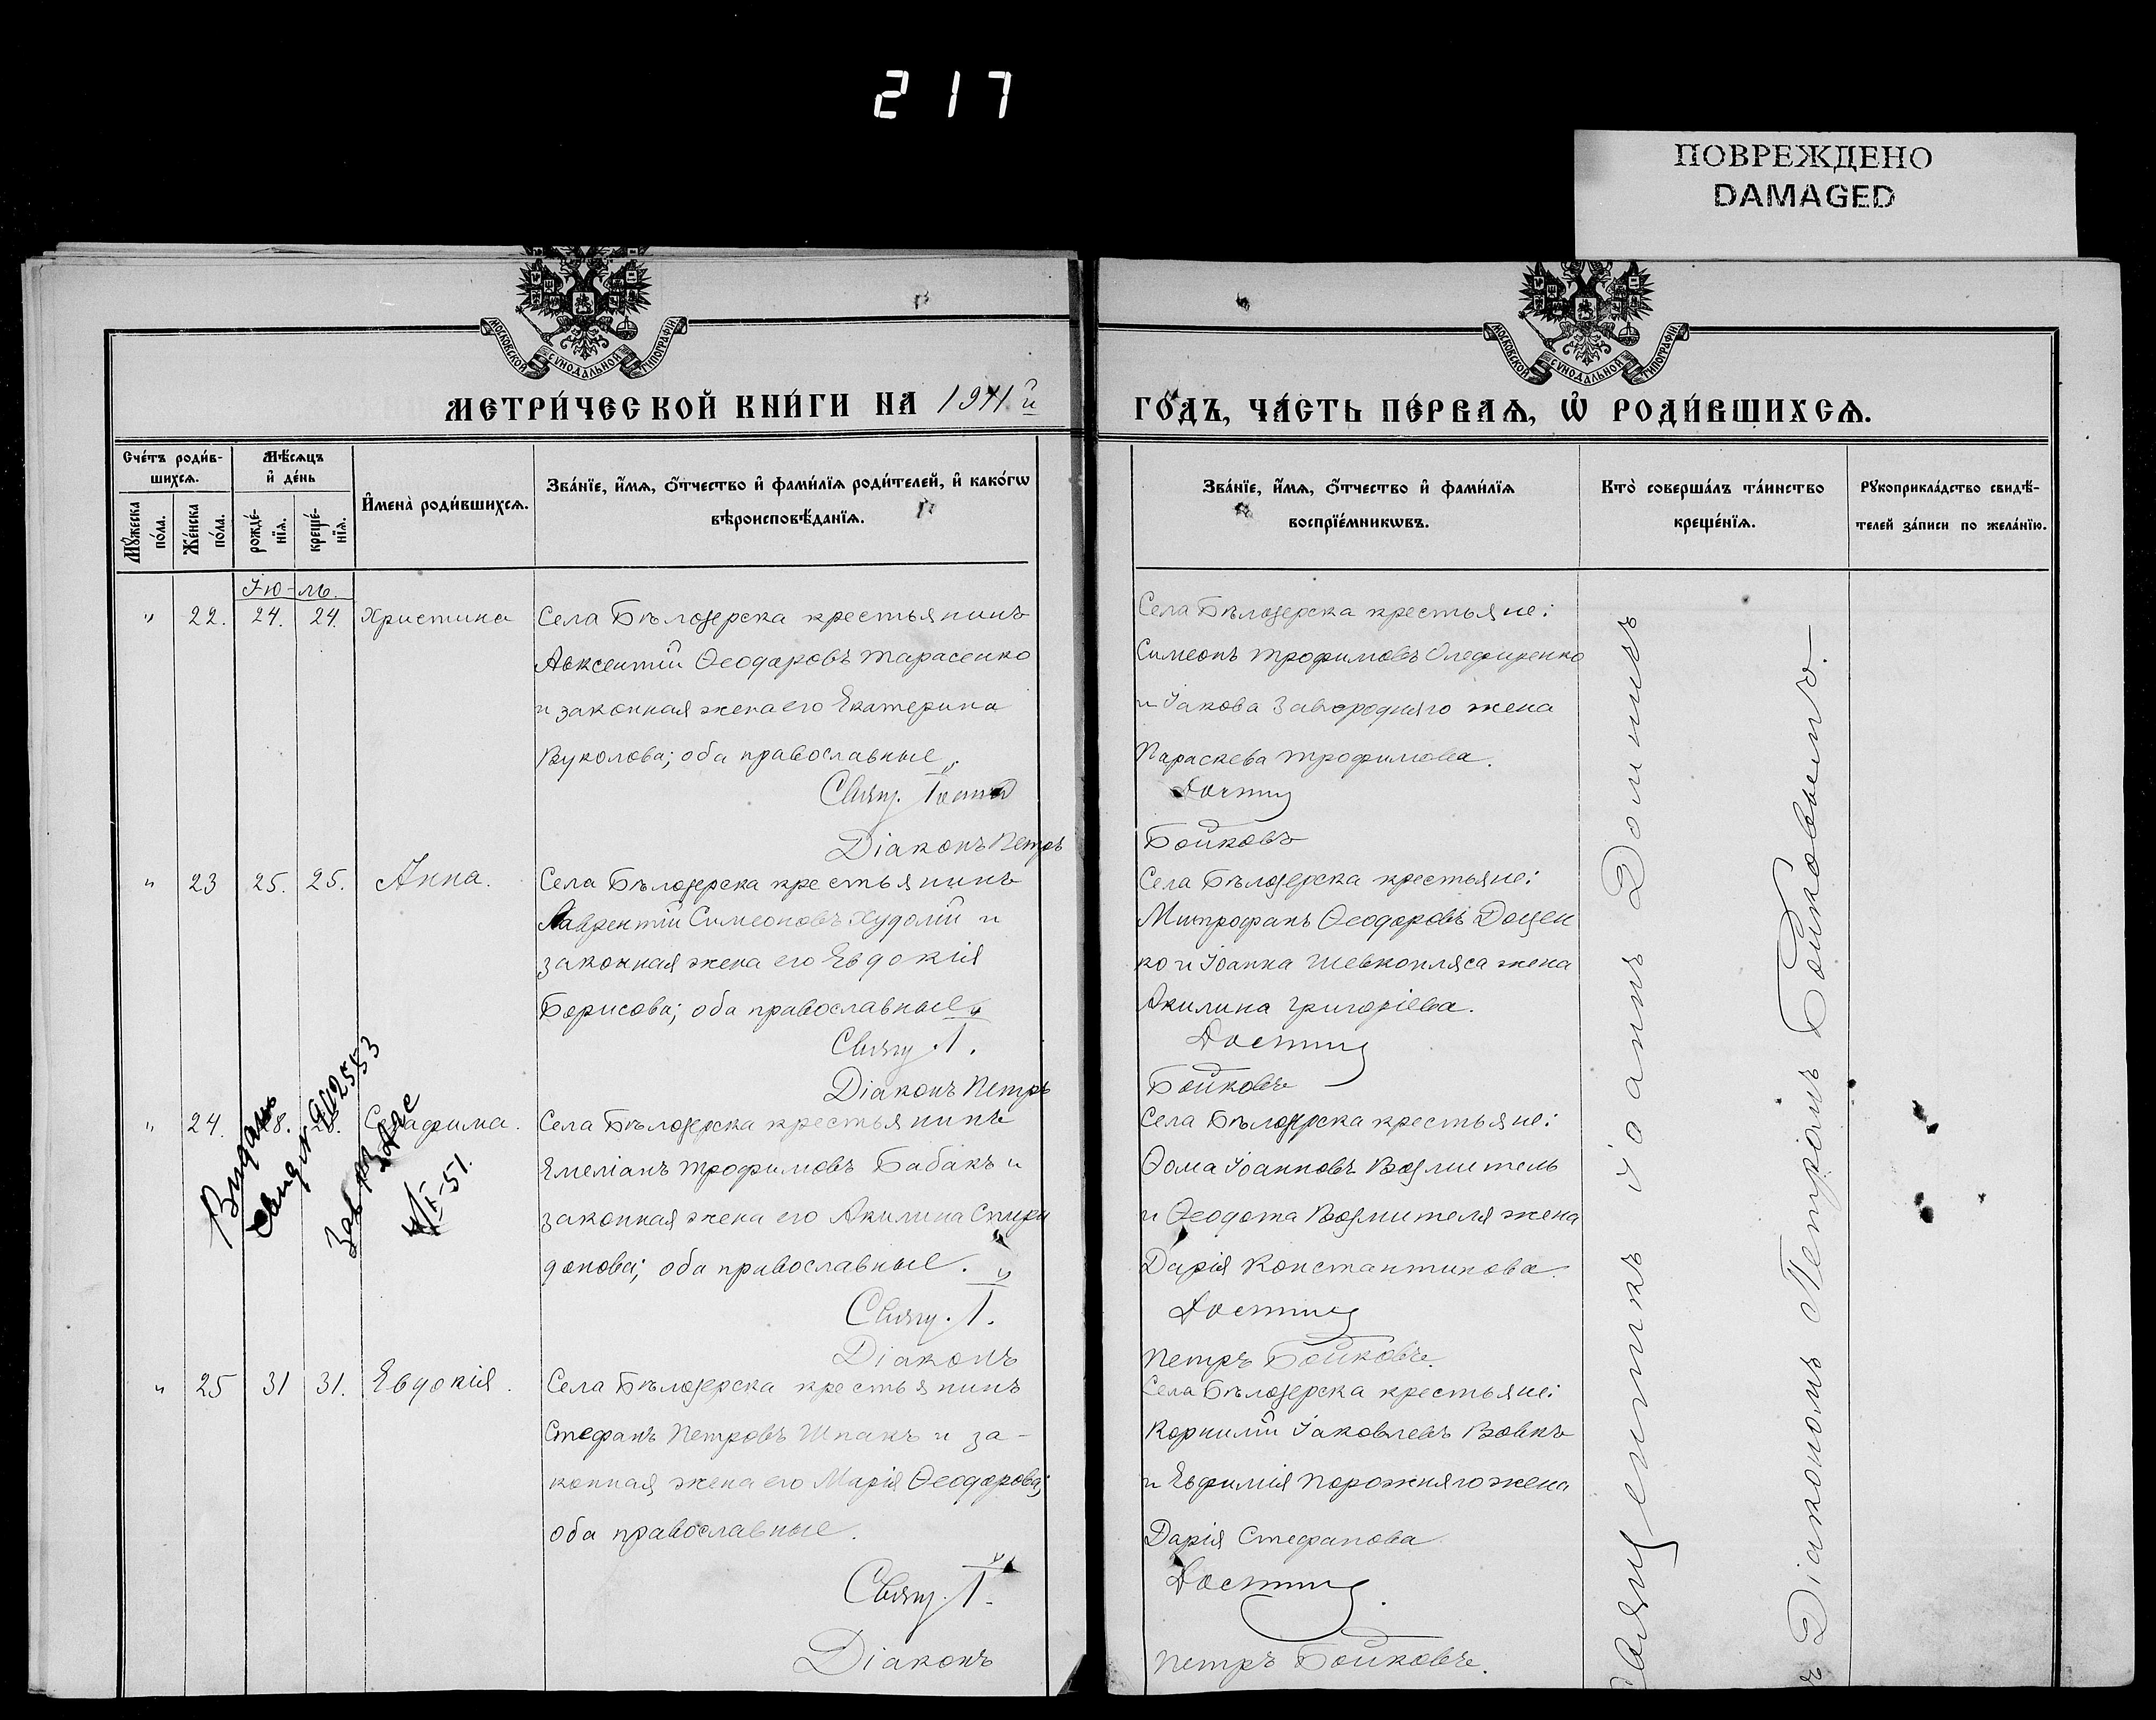 217
ПОВРЕЖДЕНО
DAMAGED
МОСКОВСКОЙ СѴНОДАЛЬНОЙ ТИПОГРАФІИ
МОСКОВСКОЙ СѴНОДАЛЬНОЙ ТИПОГРАФІИ
МЕТРИ́ЧЕСКОЙ КНИ́ГИ НА 1911 й
ГО́ДЪ, ЧА́СТЬ ПЕ́РВАѦ, Ѡ҆ РОДИ́ВШИХСѦ.
Сче́тъ роди́в-
шихсѧ.
Мꙋ́жеска по́ла.
Же́нска по́ла.
Мѣ́сѧцъ
и҆ де́нь
рожде́-
нїѧ.
креще́-
нїѧ.
И҆мена̀ роди́вшихсѧ.
Зва́нїе, и҆́мѧ, ѻ҆́тчество и҆ фами́лїѧ роди́телей, и҆ како́гѡ
вѣроисповѣ́данїѧ.
Зва́нїе, и҆́мѧ, ѻ҆́тчество и҆ фами́лїѧ
воспрїе́мникѡвъ.
Кто̀ соверша́лъ та́инство
креще́нїѧ.
Рꙋкоприкла́дство свидѣ́-
телей за́писи по жела́нїю.
Ію-ль.
" 22. 24. 24. Христина
Села Бѣлозерска крестьянинъ
Авксентій Ѳеодоровъ Тарасенко
и законная жена его Екатерина
Вуколова; оба православные
Свящ. Іоаннъ
Діаконъ Петръ
Села Бѣлозерска крестьяне:
Симеонъ Трофимовъ Олефиренко
и Іакова Завгородняго жена
Параскева Трофимова.
Бойковъ
" 23 25. 25. Анна.
Села Бѣлозерска крестьянинъ
Лаврентій Симеоновъ Худолій и
законная жена его Евдокія
Борисова; оба православные
Свящ. І.
Діаконъ Петръ
Села Бѣлозерска крестьяне:
Митрофанъ Ѳеодоровъ Доцен
ко и Іоанна Шевкопляса жена
Акилина Григоріева.
Бойковъ
" 24. 28. 28. Серафима.
Села Бѣлозерска крестьянинъ
Емеліанъ Трофимовъ Бабакъ и
законная жена его Акилина Спири
донова; оба православные.
Свящ. І.
Діаконъ
Села Бѣлозерска крестьяне:
Ѳома Іоанновъ Возмитель
и Ѳеодота Возмителя жена
Дарія Константинова.
Петръ Бойковъ.
" 25 31 31. Евдокія.
Села Бѣлозерска крестьянинъ
Стефанъ Петровъ Шпакъ и за-
конная жена его Марія Ѳеодорова;
оба православные.
Свящ. І.
Діаконъ
Села Бѣлозерска крестьяне:
Корнилій Іаковлевъ Вовкъ
и Евфимія Порожняго жена
Дарія Стефанова
Петръ Бойковъ.
Священникъ Іоаннъ
Діакономъ Петромъ Бойковымъ.